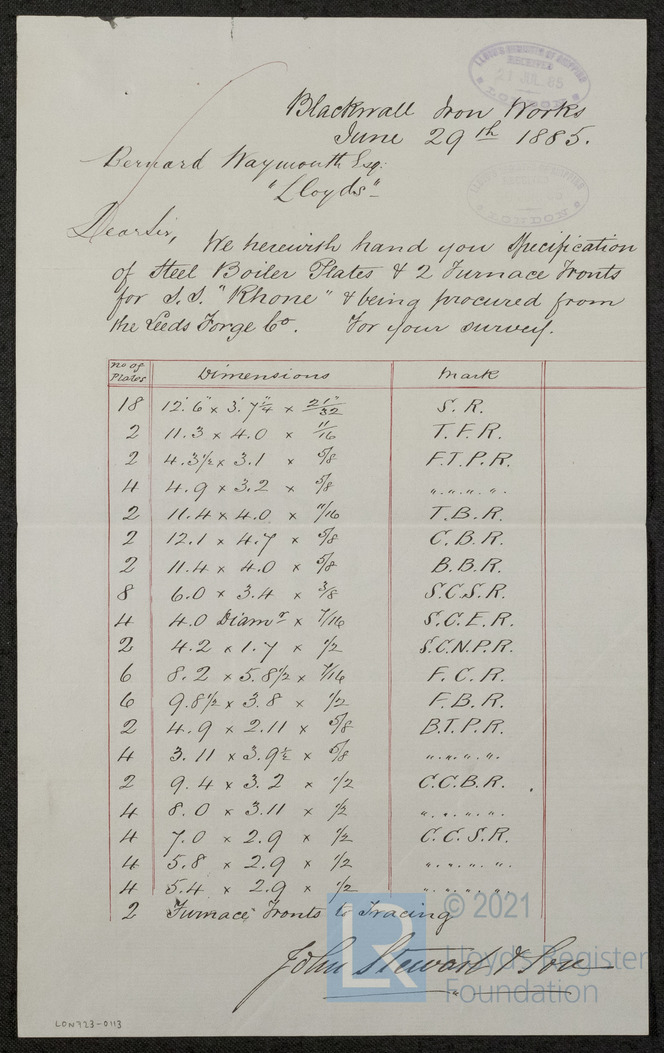 LLOYD'S REGISTER OF SHIPPING
RECEIVED
21 JUL 85
LONDON
Blackwall Iron Works
June 29th 1885.
Bernard Waymouth Esq:
"Lloyds"
LONDON
Dear Sir, We herewith hand you Specification
of Steel Boiler Plates & 2 Furnace Fronts
for S.S. "Rhone" & being procured from
the Leeds Forge Co. For your survey.
No of Plates Dimensions Mark
18 12'.6" × 3'.7¼" × 21/32" S.R.
2 11.3 × 4.0 × 11/16 T.F.R.
2 4.3½ × 3.1 × 5/8 F.T.P.R.
4 4.9 × 3.2 × 5/8 " " " "
2 11.4 × 4.0 × 11/16 T.B.R.
2 12.1 × 4.7 × 5/8 C.B.R.
2 11.4 × 4.0 × 5/8 B.B.R.
8 6.0 × 3.4 × 3/8 S.C.S.R.
4 4.0 Diamr × 7/16 S.C.E.R.
2 4.2 × 1.7 × 1/2 S.C.N.P.R.
6 8.2 × 5.8½ × 7/16 F.C.R.
6 9.8½ × 3.8 × 1/2 F.B.R.
2 4.9 × 2.11 × 5/8 B.T.P.R.
4 3.11 × 3.9½ × 5/8 " " " "
2 9.4 × 3.2 × 1/2 C.C.B.R.
4 8.0 × 3.11 × 1/2 " " " "
4 7.0 × 2.9 × 1/2 C.C.S.R.
4 5.8 × 2.9 × 1/2 " " " "
4 5.4 × 2.9 × 1/2 " " " "
2 Furnace Fronts to Tracing
John Stewart & Son
LR
© 2021
Lloyd's Register
Foundation
LON723-0113